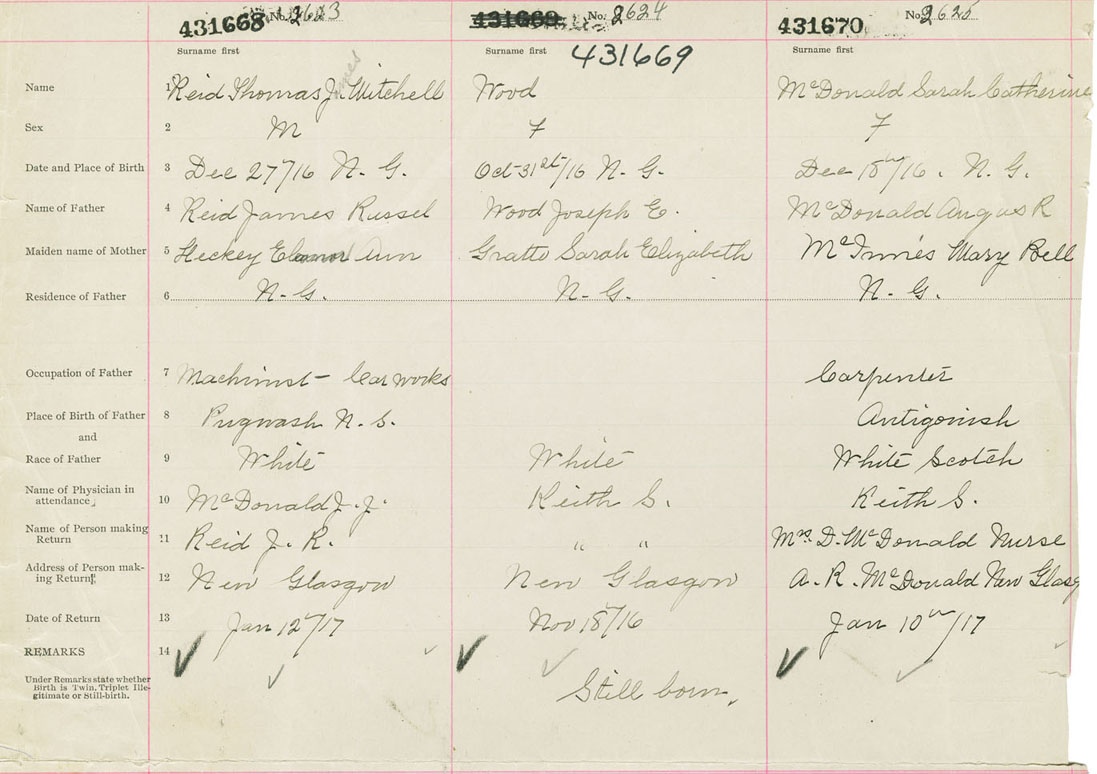 431668 No. 2623 431669 No. 2624 431670 No. 2625
Surname first Surname first 431669 Surname first
James
Name 1 Reid Thomas J. Mitchell Wood McDonald Sarah Catherine
Sex 2 M F F
Date and Place of Birth 3 Dec 27/16 N. G. Oct 31st/16 N. G. Dec 18th/16. N. G.
Name of Father 4 Reid James Russel Wood Joseph E. McDonald Angus R
Maiden name of Mother 5 Ann Gratto Sarah Elizabeth McInnes Mary Bell
Residence of Father 6 N. G. N. G. N. G.
Occupation of Father 7 Machinist - Car works Carpenter
Place of Birth of Father 8 Pugwash N. S. Antigonish
and
Race of Father 9 White White White Scotch
Name of Physician in
attendance 10 McDonald J. J. Keith S. Keith S.
Name of Person making
Return 11 Reid J. R. " " Mrs. D. McDonald Nurse
Address of Person mak-
ing Return 12 New Glasgow New Glasgow A. R. McDonald New Glasg
Date of Return 13 Jan 12/17 Nov 18/16 Jan 10th/17
REMARKS 14
Under Remarks state whether
Birth is Twin, Triplet Ille-
gitimate or Still-birth.
Still born.